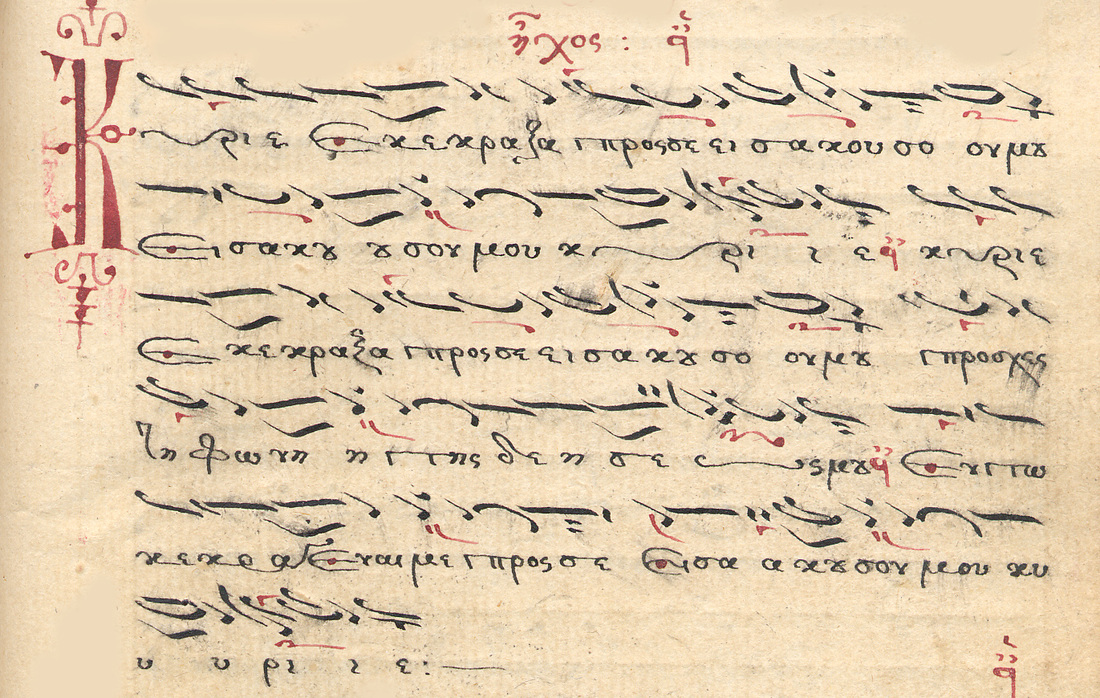 ἦχος : ᾳ
Κύριε Εκεκραξα προςσε εισακουσο ουμȣ
Εισακȣ ȣσουμου κυρι ι ε κυριε
Εκεκραξα προςσε εισακȣσο ουμȣ προσχες
τη φωνη η της δεησε ωςμȣ Εντω
κεκραγεναιμε προςσε Εισα ακȣσουμου κυ
υ υ ρι ι ε :